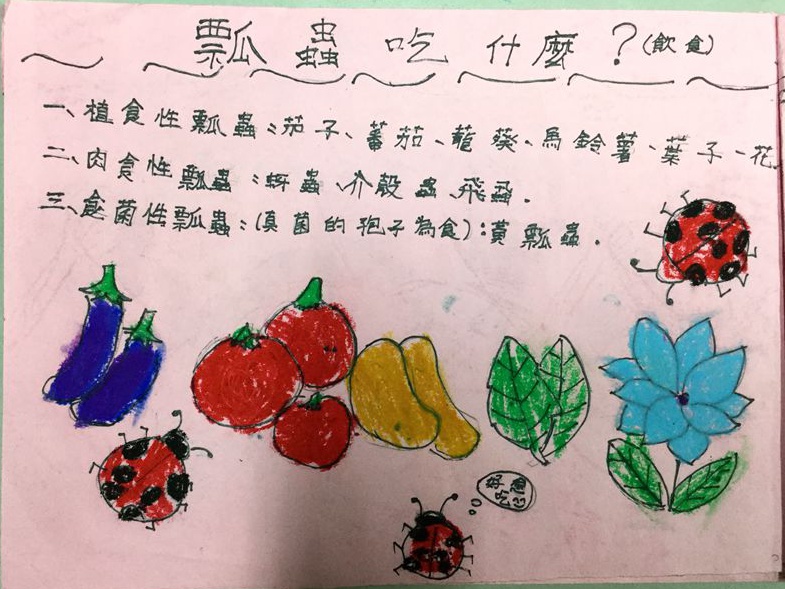 瓢蟲吃什麼?(飲食)
一、植食性瓢蟲:茄子、蕃茄、龍葵、馬鈴薯、葉子、花
二、肉食性瓢蟲:蚜蟲、介殼蟲、飛蝨.
三、食菌性瓢蟲:(真菌的孢子為食):黃瓢蟲.
好想吃